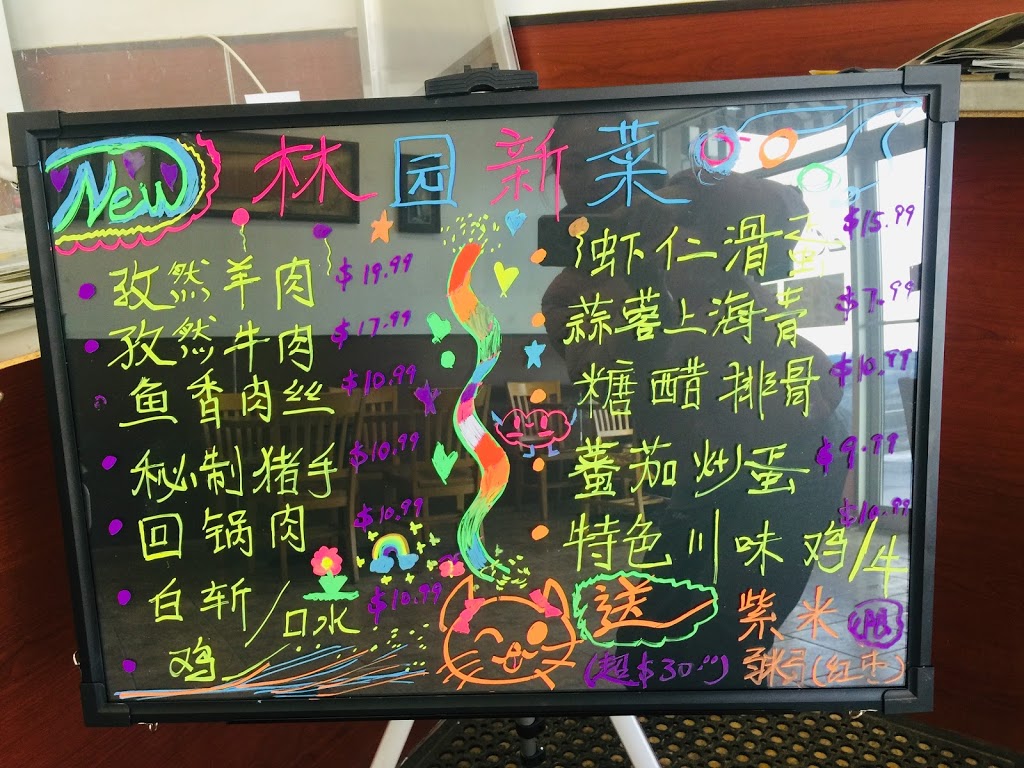 New 林园新菜
孜然羊肉 $19.99
孜然牛肉 $17.99
鱼香肉丝 $10.99
秘制猪手 $10.99
回锅肉 $10.99
白斩/口水 $10.99
鸡
虾仁滑蛋 $15.99
蒜蓉上海青 $7.99
糖醋排骨 $10.99
蕃茄炒蛋 $9.99
特色川味鸡/牛 $10.99
送 紫米 限
(超$30.00) 粥(红枣)